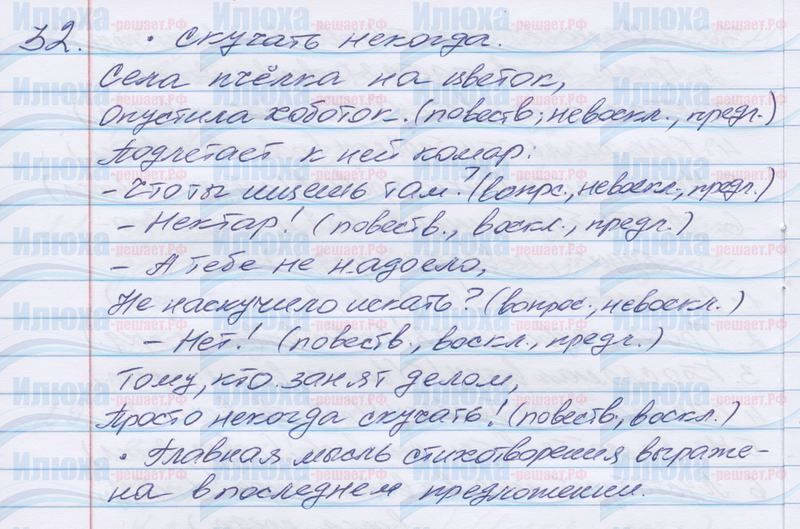 32. • Скучать некогда.
Села пчёлка на цветок,
Опустила хоботок. (повеств., невоскл., предл.)
Подлетает к ней комар:
– Что ты ищешь там? (вопрс., невоскл., предл.)
– Нектар! (повеств., воскл., предл.)
– А тебе не надоело,
Не наскучило искать? (вопрос., невоскл.)
– Нет! (повеств., воскл., предл.)
Тому, кто занят делом,
Просто некогда скучать! (повеств., воскл.)
• Главная мысль стихотворения выраже-
на в последнем предложении.